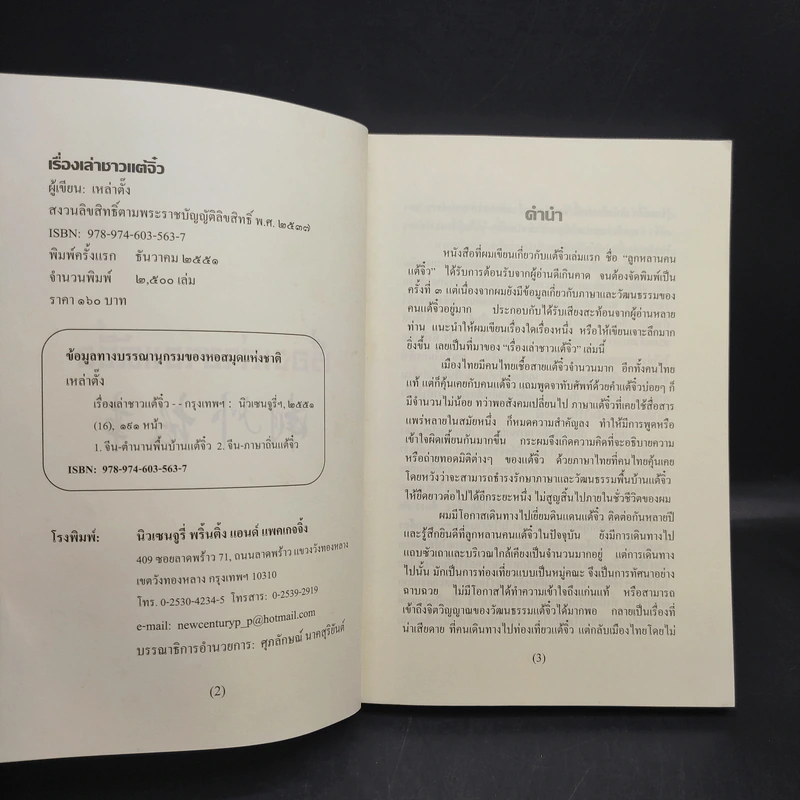 เรื่องเล่าชาวแต้จิ๋ว
ผู้เขียน: เหล่าตั๊ง
สงวนลิขสิทธิ์ตามพระราชบัญญัติลิขสิทธิ์ พ.ศ. ๒๕๓๗
ISBN: 978-974-603-563-7
พิมพ์ครั้งแรก ธันวาคม ๒๕๕๑
จำนวนพิมพ์ ๒,๕๐๐ เล่ม
ราคา ๑๖๐ บาท
ข้อมูลทางบรรณานุกรมของหอสมุดแห่งชาติ
เหล่าตั๊ง
เรื่องเล่าชาวแต้จิ๋ว - - กรุงเทพฯ : นิวเซนจูรี่ฯ, ๒๕๕๑
(16), ๑๙๑ หน้า
1. จีน-ตำนานพื้นบ้านแต้จิ๋ว 2. จีน-ภาษาถิ่นแต้จิ๋ว
ISBN: 978-974-603-563-7
โรงพิมพ์: นิวเซนจูรี่ พริ้นติ้ง แอนด์ แพคเกจจิ้ง
409 ซอยลาดพร้าว 71, ถนนลาดพร้าว แขวงวังทองหลาง
เขตวังทองหลาง กรุงเทพฯ 10310
โทร. 0-2530-4234-5 โทรสาร: 0-2539-2919
e-mail: newcenturyp_p@hotmail.com
บรรณาธิการอำนวยการ: ศุภลักษณ์ นาคสุริยันต์
(2)
คำนำ
หนังสือที่ผมเขียนเกี่ยวกับแต้จิ๋วเล่มแรก ชื่อ “ลูกหลานคน
แต้จิ๋ว” ได้รับการต้อนรับจากผู้อ่านดีเกินคาด จนต้องจัดพิมพ์เป็น
ครั้งที่ ๓ แต่เนื่องจากผมยังมีข้อมูลเกี่ยวกับภาษาและวัฒนธรรมของ
คนแต้จิ๋วอยู่มาก ประกอบกับได้รับเสียงสะท้อนจากผู้อ่านหลาย
ท่าน แนะนำให้ผมเขียนเรื่องใดเรื่องหนึ่ง หรือให้เขียนเจาะลึกมาก
ยิ่งขึ้น เลยเป็นที่มาของ “เรื่องเล่าชาวแต้จิ๋ว” เล่มนี้
เมืองไทยมีคนไทยเชื้อสายแต้จิ๋วจำนวนมาก อีกทั้งคนไทย
แท้ แต่ก็คุ้นเคยกับคนแต้จิ๋ว แถมพูดจาทับศัพท์ด้วยคำแต้จิ๋วบ่อยๆ ก็
มีจำนวนไม่น้อย ทว่าพอสังคมเปลี่ยนไป ภาษาแต้จิ๋วที่เคยใช้สื่อสาร
แพร่หลายในสมัยหนึ่ง ก็หมดความสำคัญลง ทำให้มีการพูดหรือ
เข้าใจผิดเพี้ยนกันมากขึ้น กระผมจึงเกิดความคิดที่จะอธิบายความ
หรือถ่ายทอดมิติต่างๆ ของแต้จิ๋ว ด้วยภาษาไทยที่คนไทยคุ้นเคย
โดยหวังว่าจะสามารถธำรงรักษาภาษาและวัฒนธรรมพื้นบ้านแต้จิ๋ว
ให้ยืดยาวต่อไปได้อีกระยะหนึ่ง ไม่สูญสิ้นไปภายในชั่วชีวิตของผม
ผมมีโอกาสเดินทางไปเยี่ยมดินแดนแต้จิ๋ว ติดต่อกันหลายปี
และรู้สึกยินดีที่ลูกหลานคนแต้จิ๋วในปัจจุบัน ยังมีการเดินทางไป
แถบซัวเถาและบริเวณใกล้เคียงเป็นจำนวนมากอยู่ แต่การเดินทาง
ไปนั้น มักเป็นการท่องเที่ยวแบบเป็นหมู่คณะ จึงเป็นการทัศนาอย่าง
ฉาบฉวย ไม่มีโอกาสได้ทำความเข้าใจถึงแก่นแท้ หรือสามารถ
เข้าถึงจิตวิญญาณของวัฒนธรรมแต้จิ๋วได้มากพอ กลายเป็นเรื่องที่
น่าเสียดาย ที่คนเดินทางไปท่องเที่ยวแต้จิ๋ว แต่กลับเมืองไทยโดยไม่
(3)